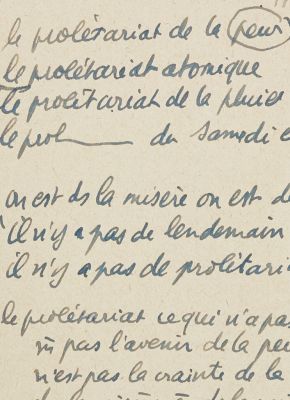 le prolétariat de la peur
le prolétariat atomique
le prolétariat de la pluie
le prol——— du Samedi
on est ds la misère on est
il n'y a pas de lendemain
il n'y a pas de prolétari
le prolétariat ce qui n'a pas
ni pas l'avenir de la peu
n'est pas la crainte de la